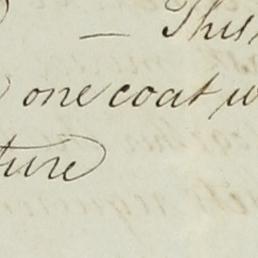 — This
one coat w
ture